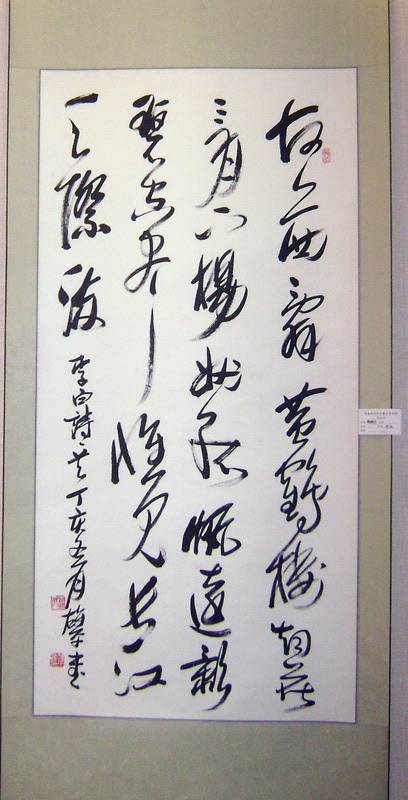 故人西辞黄鶴楼烟花
三月下揚州孤帆遠影
碧空尽惟見長江
天際流 李白詩 丁亥五月 書